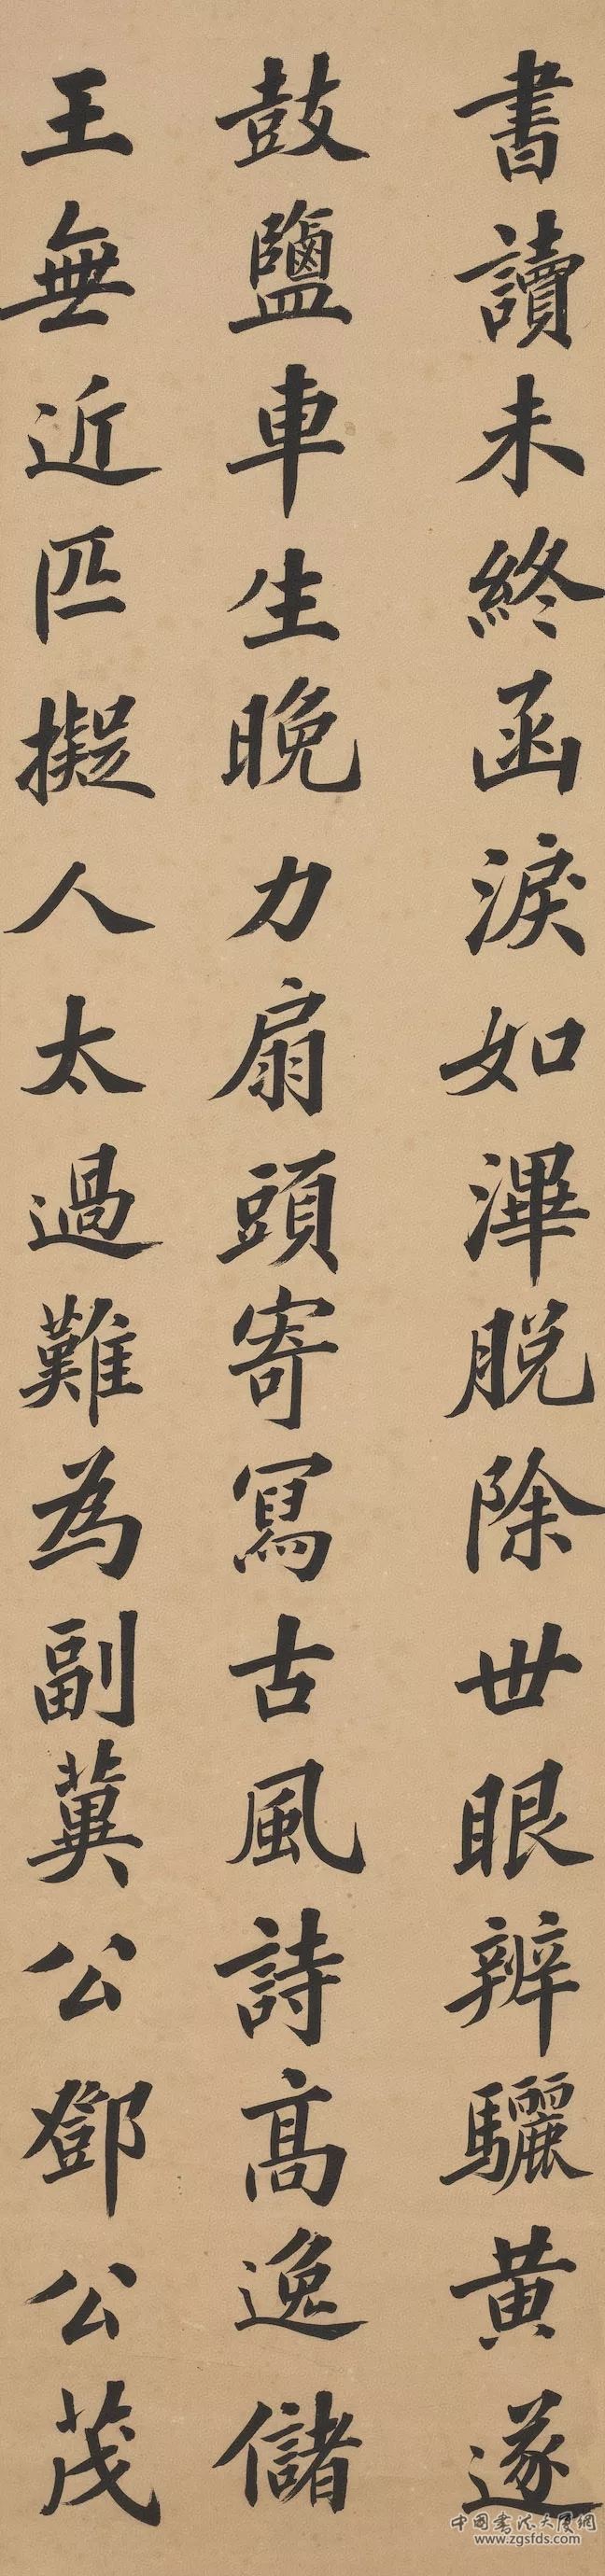 書讀未終函淚如渾脱除世眼辨驪黄遂
鼓鹽車生晚力扇頭寄寫古風詩高逸儲
王無近匹擬人太過難為副冀公鄧公茂
中国书法大厦網
www.zgsfds.com